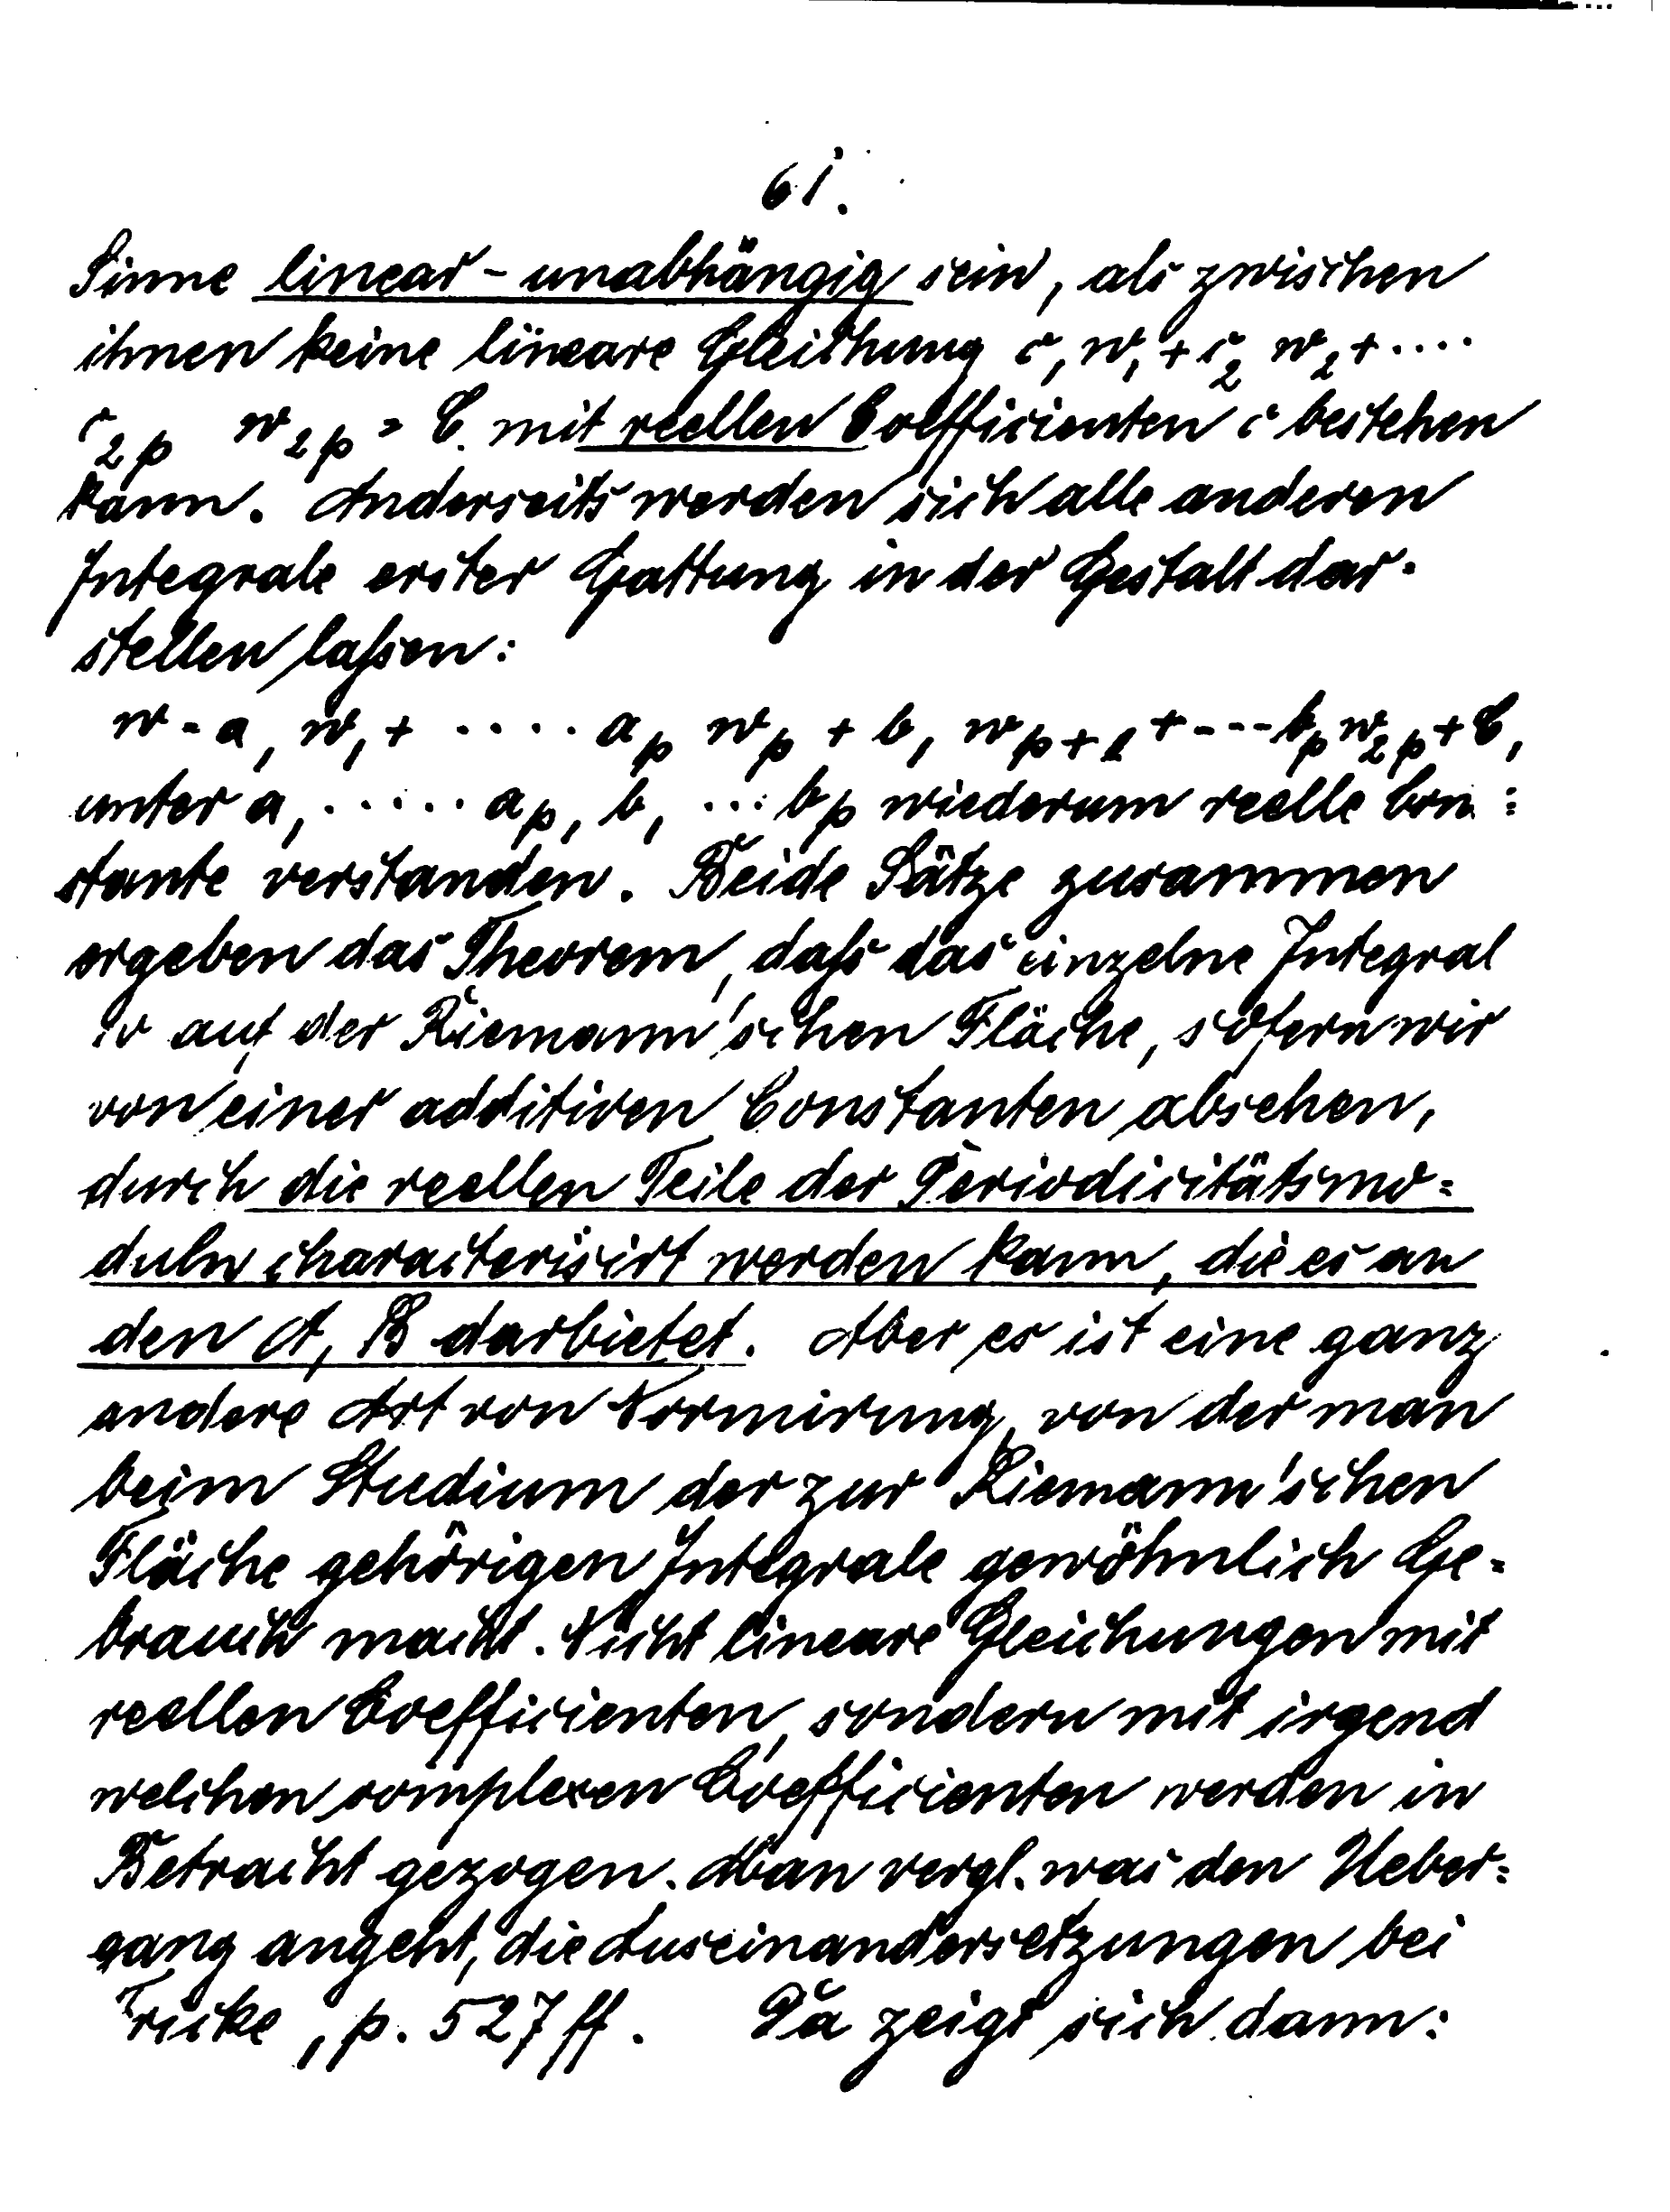 61.
Sinne linear - unabhängig sein, als zwischen
ihnen keine lineare Gleichung c₁ w₁ + c₂ w₂ + ....
c₂ₚ w₂ₚ = C. mit reellen Coefficienten c bestehen
kann. Anderseits werden sich alle anderen
Integrale erster Gattung in der Gestalt dar-
stellen laßen:
w = a₁ w₁ + ..... aₚ wₚ + b₁ wₚ₊₁ + --- bₚ w₂ₚ + C,
unter a₁ ..... aₚ, b₁ ... bₚ wiederum reelle Con=
stante verstanden. Beide Sätze zusammen
ergeben das Theorem, daß das einzelne Integral
w auf der Riemann'schen Fläche, sofern wir
von einer additiven Constanten absehen,
durch die reellen Teile der Periodicitätsmo=
duln characterisirt werden kann, die es an
den A, B darbietet. Aber es ist eine ganz
andere Art von Normirung, von der man
beim Studium der zur Riemann'schen
Fläche gehörigen Integrale gewöhnlich Ge-
brauch macht. Nicht lineare Gleichungen mit
reellen Coefficienten, sondern mit irgend
welchen complexen Coefficienten werden in
Betracht gezogen. Man vergl. was den Ueber=
gang angeht, die Auseinandersetzungen bei
Fricke, p. 527 ff. Da zeigt sich dann: